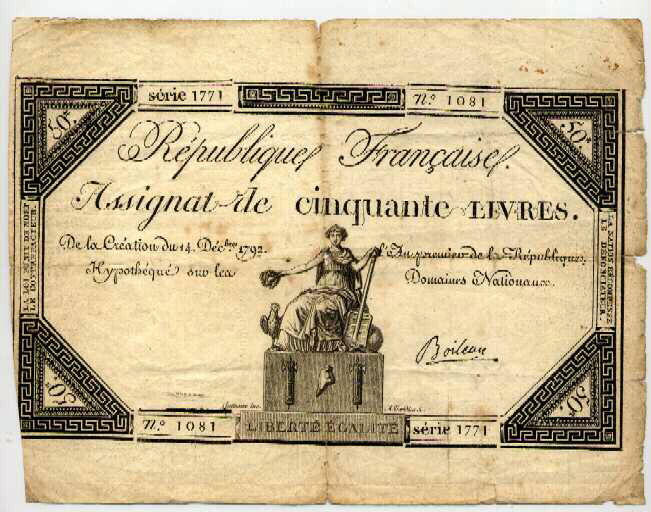 série 1771
nº 1081
50#
50#
République Française.
Assignat de cinquante LIVRES.
De la Création du 14. Décbre 1792. l'An premier de la République;
Hypothéqué sur les Domaines Nationaux.
LA LOI PUNIT DE MORT
LE CONTREFACTEUR.
LA NATION RÉCOMPENSE
LE DÉNONCIATEUR.
Boileau
50#
50#
nº 1081
LIBERTÉ EGALITÉ
série 1771